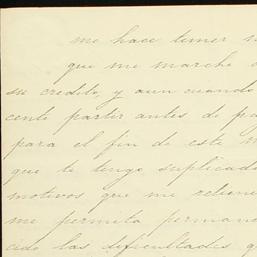 me hace temer
que me marche
su credito, y aun cuando
cente partir antes de
para el fin de este
que te tengo suplicado
motivos que me retiene
me permita perman
cido las dificultades